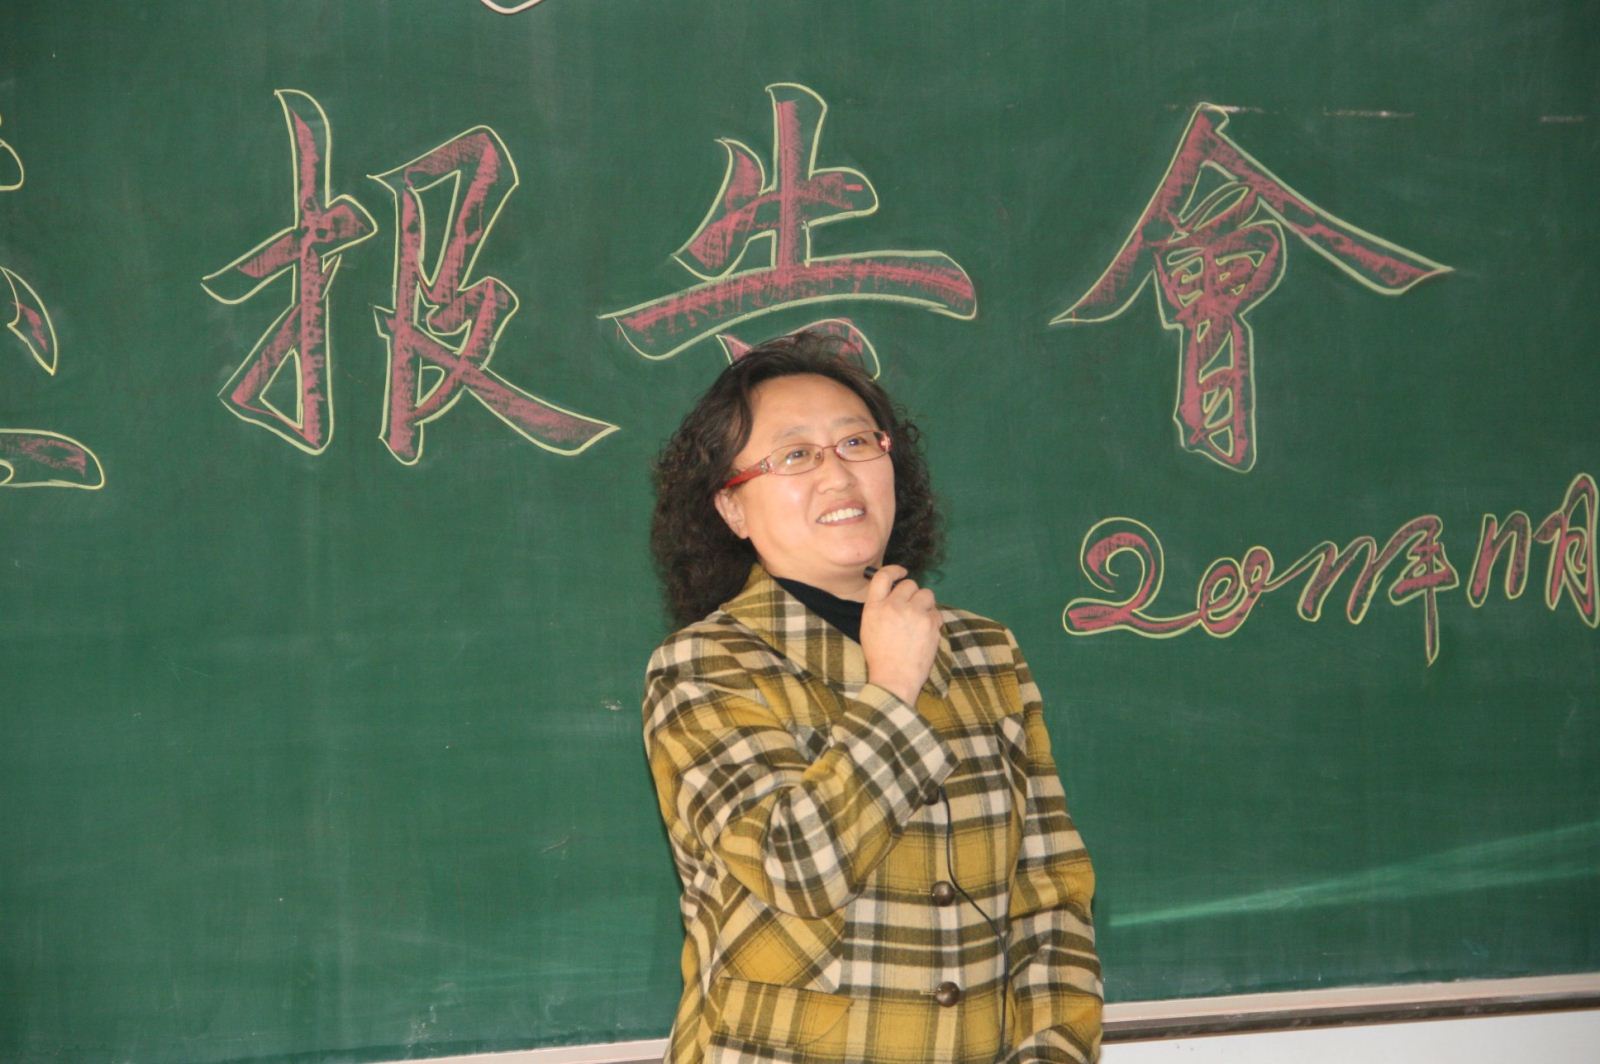 报告會
2011年11月